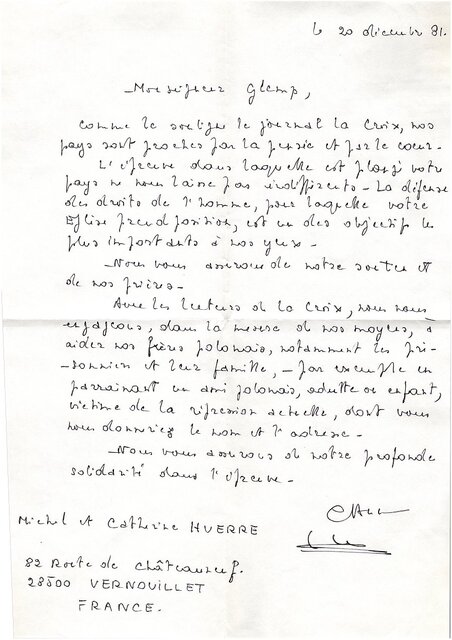 le 20 décembre 81.
Monseigneur Glemp,
Comme le souligne le journal la Croix, nos
pays sont proches par la pensée et par le cœur.
L'épreuve dans laquelle est plongé votre
pays ne nous laisse pas indifférents. La défense
des droits de l'homme, pour laquelle votre
Eglise prend position, est un des objectifs les
plus importants à nos yeux.
Nous vous assurons de notre soutien et
de nos prières.
Avec les lecteurs de la Croix, nous nous
engageons, dans la mesure de nos moyens, à
aider nos frères polonais, notamment les pri-
sonniers et leur famille, - par exemple en
parrainant un ami polonais, adulte ou enfant,
victime de la répression actuelle, dont vous
nous donneriez le nom et l'adresse.
Nous vous assurons de notre profonde
solidarité dans l'épreuve.
Michel et Catherine HUERRE
82 Route de Châteauneuf.
28500 VERNOUILLET
FRANCE.